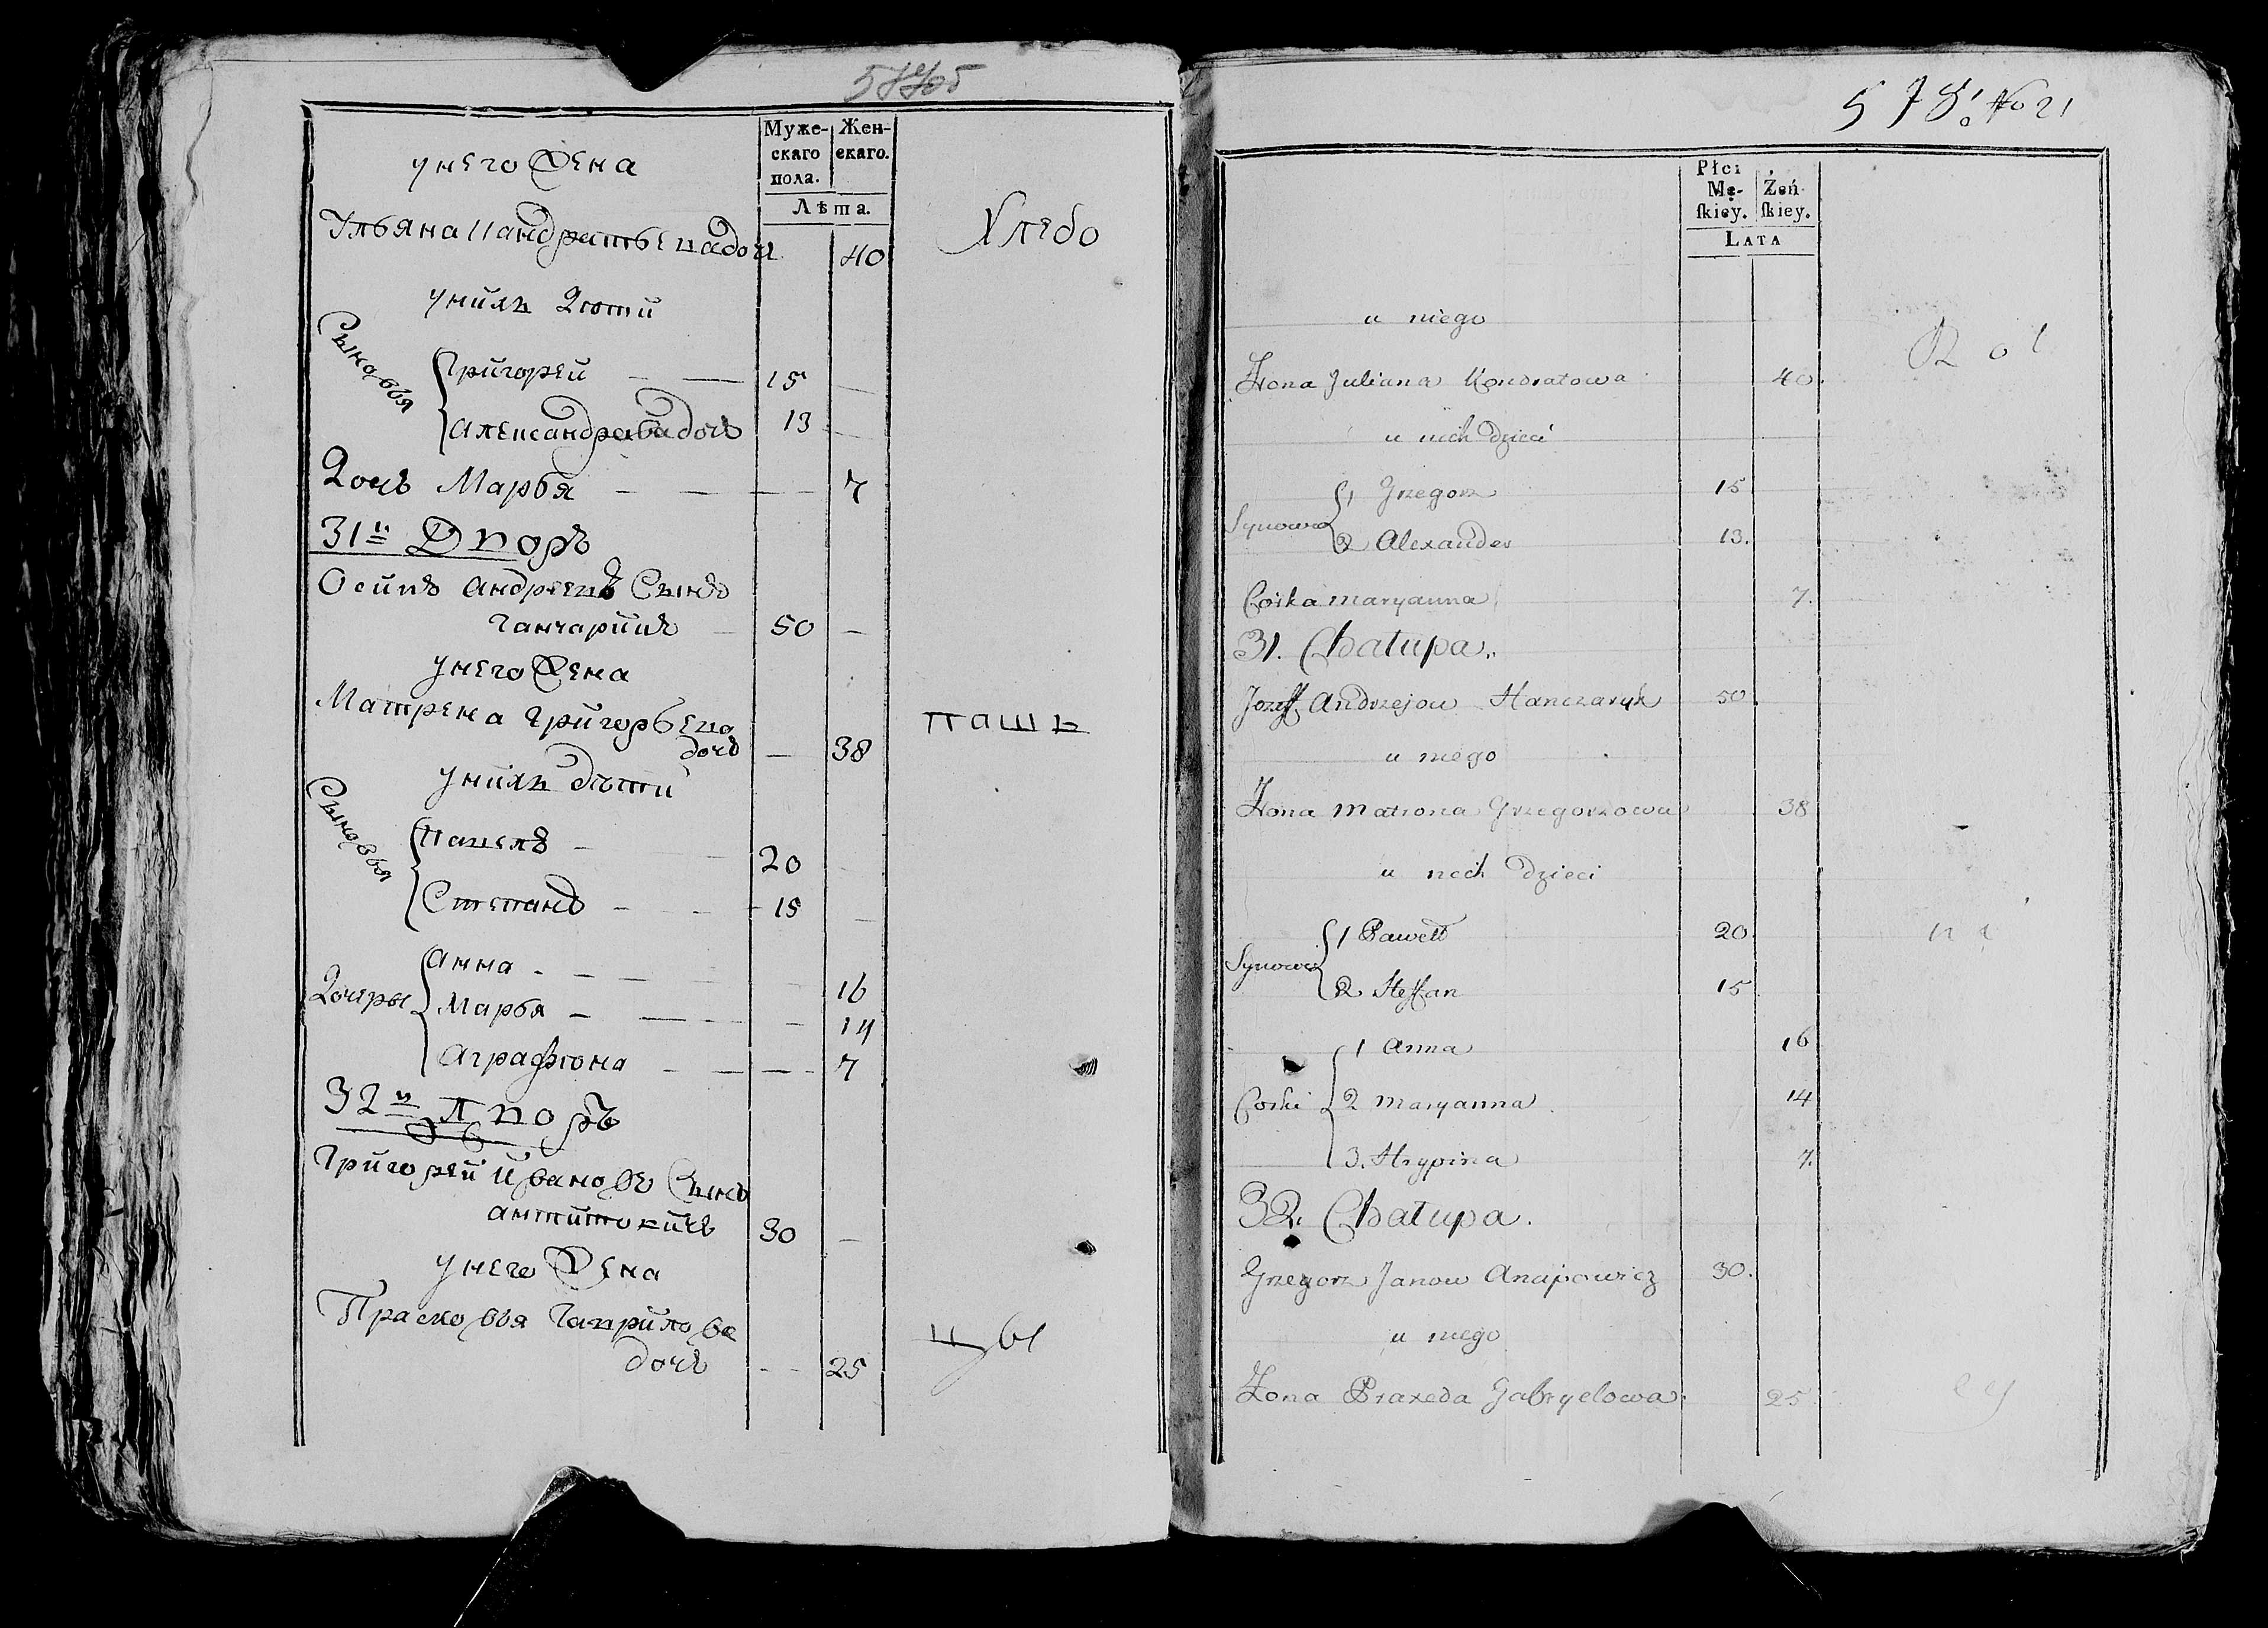 577об
Муже-
скаго
пола.
Жен-
скаго.
Лѣта.
у него Жена
Ульяна Кандратьева дочь 40
Хлебо
у нихъ Дѣти
Сыновья
Григорей 15
Александра дочь 13
Дочь Марья 7
31й Дворъ
Осипъ Андреевъ Сынъ
Ганчарикъ 50
у него Жена
Матрена Григорьева
дочь 38
паш
у нихъ дѣти
Сыновья
Павелъ 20
Степанъ 15
Дочери
Анна 16
Марья 14
Аграфiона 7
32й Дворъ
Григорей Ивановъ Сынъ
30
у него Жена
Прасковья Гаврилова
дочь 25
цы
578. No 21
Płci
Mę-
ſkiey.
Żeń
ſkiey.
LATA
u niego
Rol
Żona Juliana Kondratowa 40.
u nich Dzieci
Synowie
1 Grzegorz 15
2 Alexander 13.
Corka Maryanna 7.
31. Chałupa.
Jozeff Andrzejow Hanczaryk 50.
u niego
Żona Matrona Grzegorzowa 38
u nich Dzieci
Synowie
1 Pawełł 20.
ni
2 Steffan 15
Corki
1 Anna 16
2 Maryanna 14
3. Hrypina 7.
32. Chałupa.
Grzegorz Janow Anapowicz 30.
u niego
Żona Praxeda Gabryelowa 25
cy